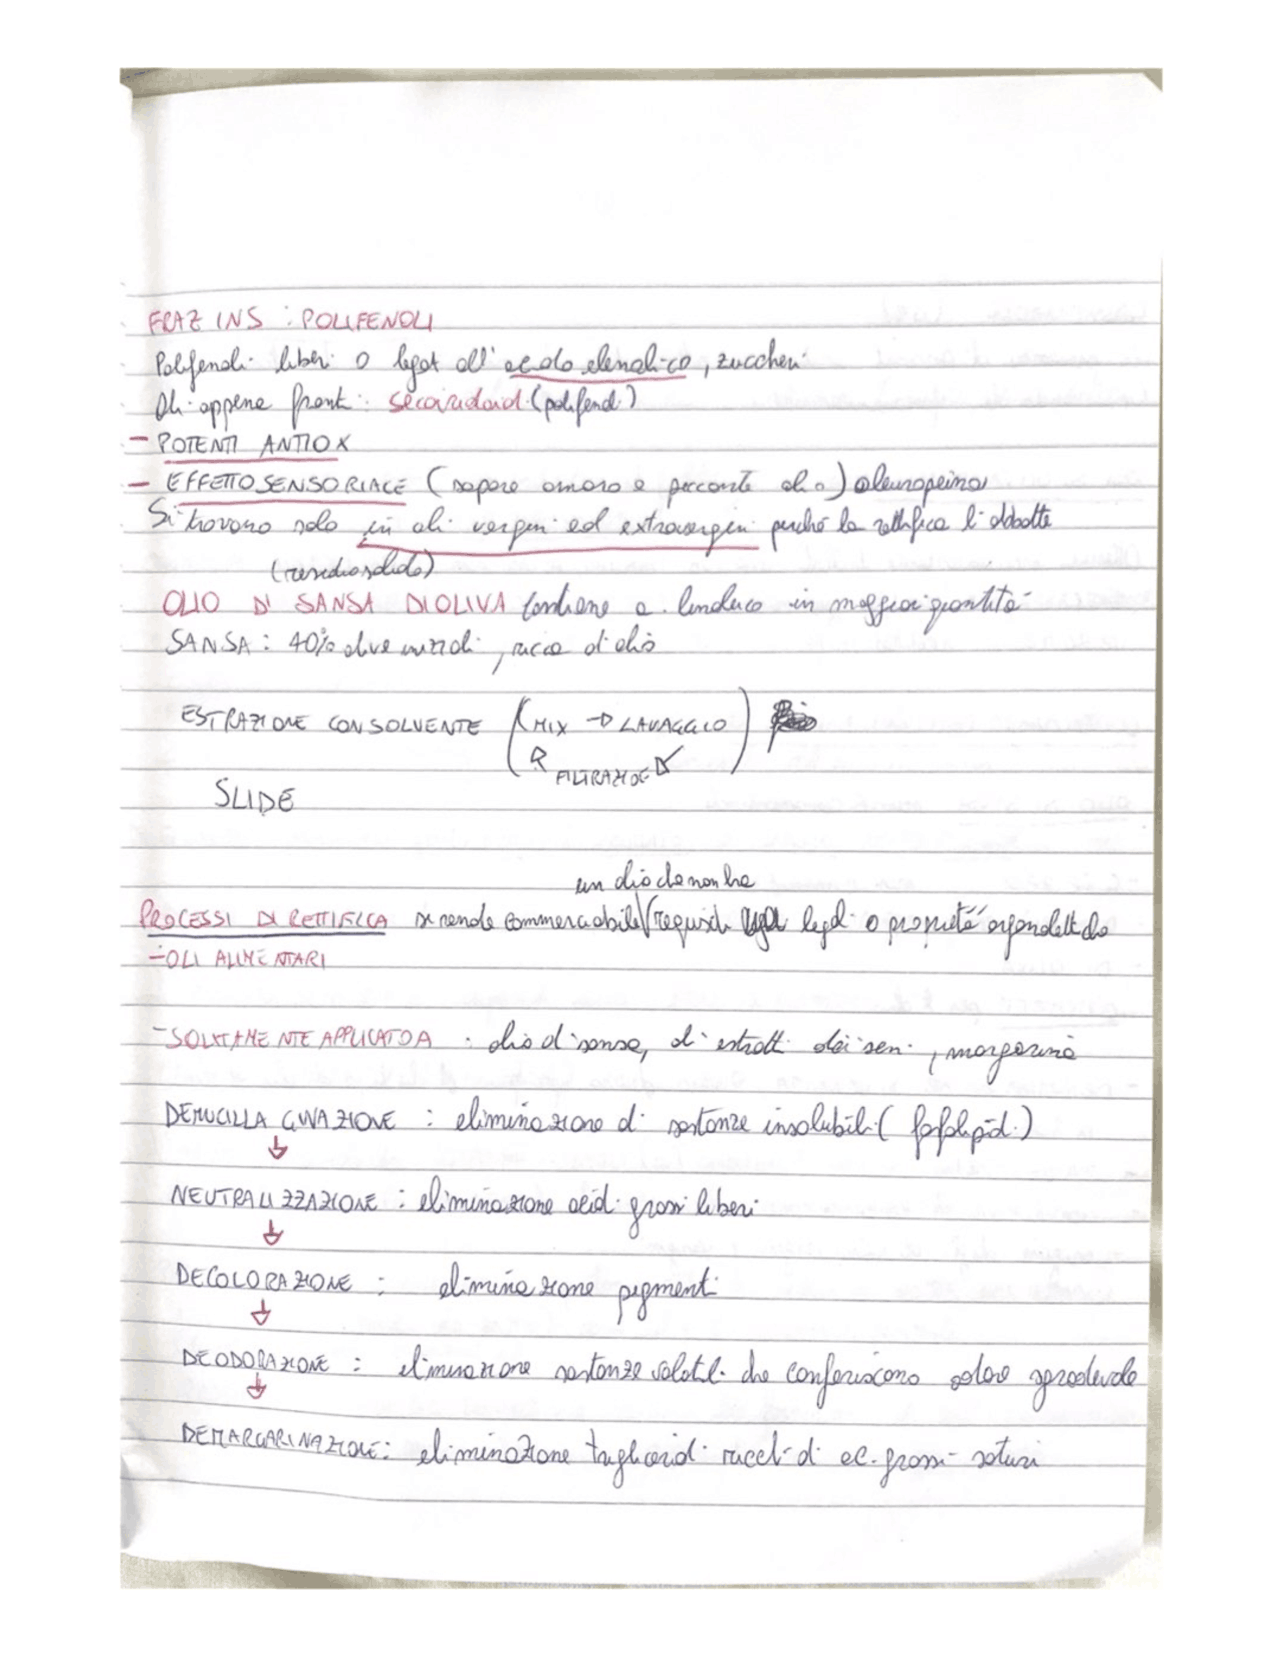 FRAZ INS : POLIFENOLI
Polifenoli liberi o legati all'acido elenolico, zuccheri
Oli appena pronti: secoiridoidi (polifenoli)
- POTENTI ANTIOX
- EFFETTO SENSORIALE (sapore amaro e piccante olio) oleuropeina
Si trovano solo in oli vergini ed extravergini perché la rettifica li abbatte
(residio solido)
OLIO DI SANSA DI OLIVA contiene a. linoleico in maggior quantità
SANSA : 40% olive iniziali, ricca di olio
ESTRAZIONE CON SOLVENTE (MIX → LAVAGGIO)
FILTRAZIONE
SLIDE
un olio che non ha
PROCESSI DI RETTIFICA si rende commerciabile requisiti legali o proprietà organolettiche
- OLI ALIMENTARI
- SOLITAMENTE APPLICATO A : olio di sansa, oli estratti dai semi, margarina
DEMUCILLAGINAZIONE : eliminazione di sostanze insolubili (fosfolipidi)
↓
NEUTRALIZZAZIONE : eliminazione acidi grassi liberi
↓
DECOLORAZIONE : eliminazione pigmenti
↓
DEODORAZIONE : eliminazione sostanze volatili che conferiscono odore sgradevole
↓
DEMARGARINAZIONE : eliminazione trigliceridi ricchi di ac. grassi saturi